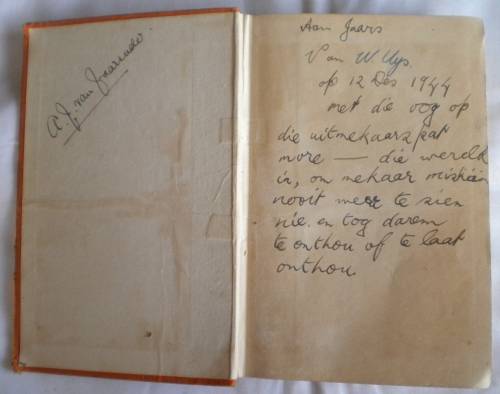 A. J. van
Aan Jaars
Van W. Uys
op 12 Des 1944
met die oog op
die uitmekaarspat
more — die wereld
in, om mekaar miskien
nooit meer te sien
nie. en tog darem
te onthou of te laat
onthou.